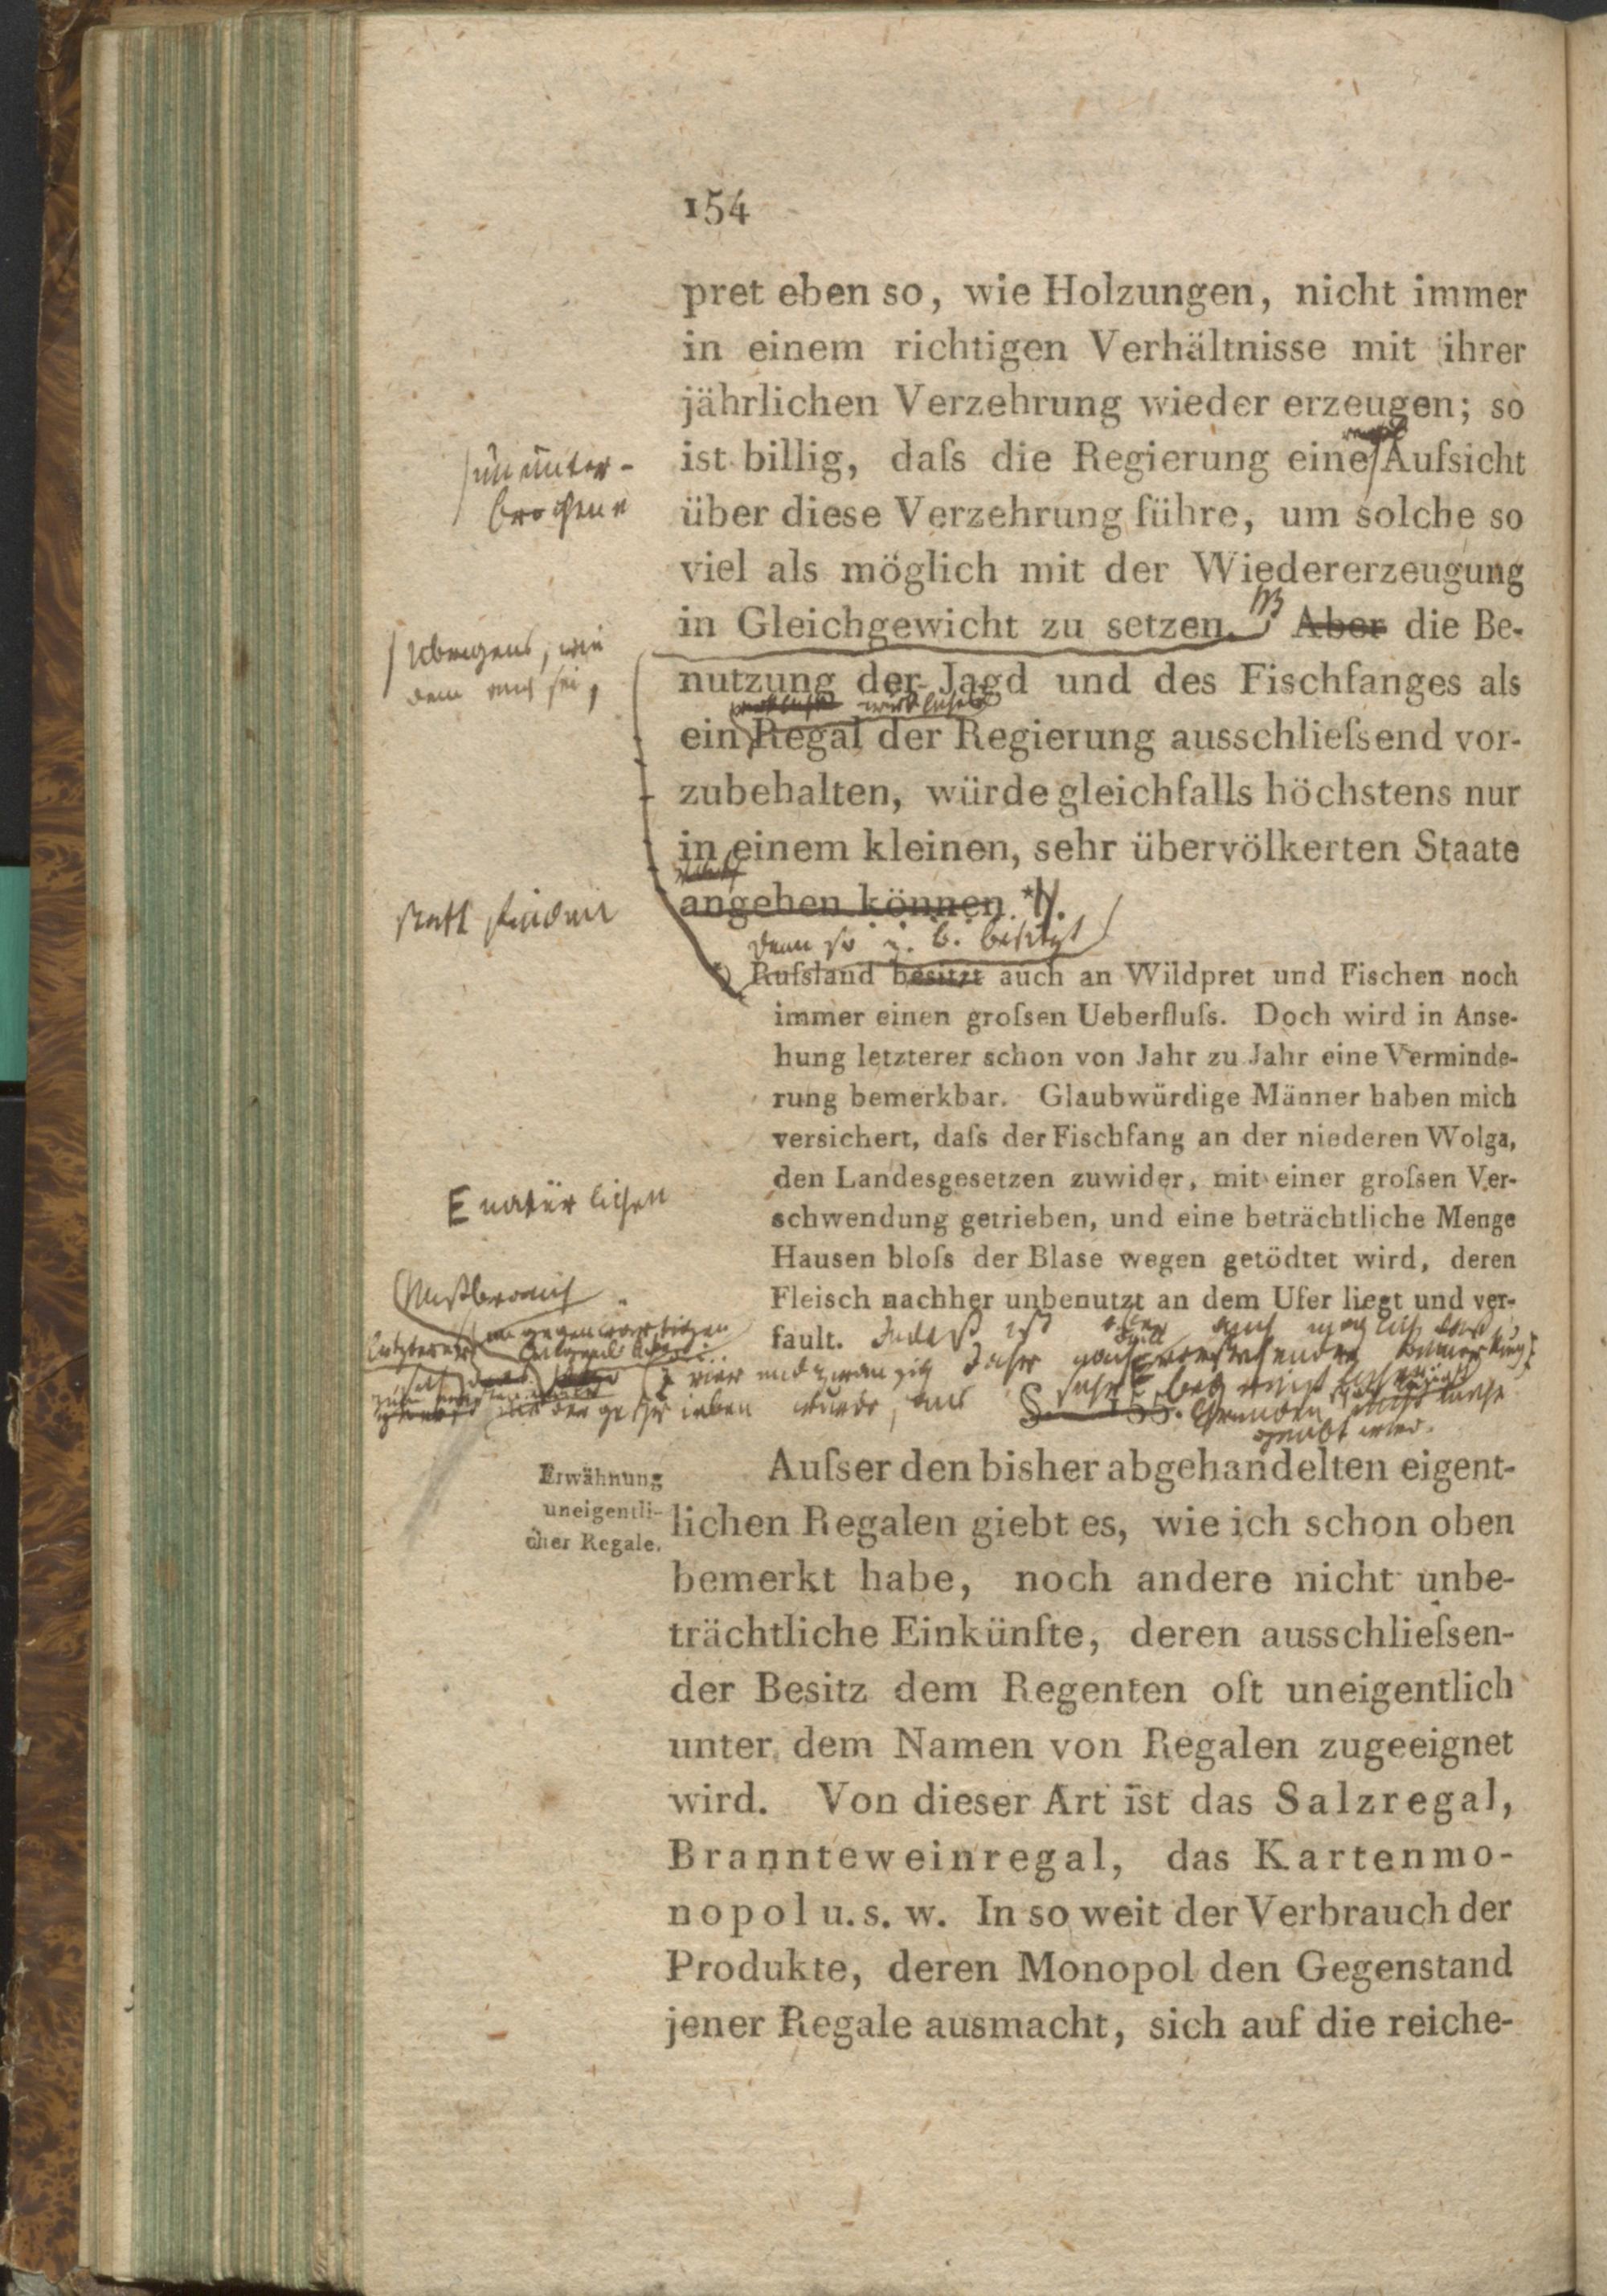 154
pret eben so, wie Holzungen, nicht immer
in einem richtigen Verhältnisse mit ihrer
jährlichen Verzehrung wieder erzeugen; so
ununter-
brochene
ist billig, daſs die Regierung eine Aufsicht
über diese Verzehrung führe, um solche so
viel als möglich mit der Wiedererzeugung
in Gleichgewicht zu setzen. Aber die Be-
Uebrigens, wie
dem auch sei,
nutzung der Jagd und des Fischfanges als
wirkliches
ein Regal der Regierung ausschlieſsend vor-
zubehalten, würde gleichfalls höchstens nur
in einem kleinen, sehr übervölkerten Staate
statt finden
angehen können *).
denn so z. b. besitzt
*) Ruſsland besitzt auch an Wildpret und Fischen noch
immer einen groſsen Ueberfluſs. Doch wird in Anse-
hung letzterer schon von Jahr zu Jahr eine Verminde-
rung bemerkbar. Glaubwürdige Männer haben mich
versichert, daſs der Fischfang an der niederen Wolga,
den Landesgesetzen zuwider, mit einer groſsen Ver-
natürlichen
schwendung getrieben, und eine beträchtliche Menge
Hausen bloſs der Blase wegen getödtet wird, deren
Miſsbrauch
Fleisch nachher unbenutzt an dem Ufer liegt und ver-
fault. Indeß ist aber auch möglich daß
im gegenwärtigen
vier und zwanzig Jahre nach vorstehender Bemerkung,
niedergeschrieben wurde, aus
S. 155. Gründen nicht mehr
geübt wird.
Erwähnung
uneigentli-
cher Regale.
Auſser den bisher abgehandelten eigent-
lichen Regalen giebt es, wie ich schon oben
bemerkt habe, noch andere nicht unbe-
trächtliche Einkünfte, deren ausschlieſsen-
der Besitz dem Regenten oft uneigentlich
unter dem Namen von Regalen zugeeignet
wird. Von dieser Art ist das Salzregal,
Brannteweinregal, das Kartenmo-
nopol u. s. w. In so weit der Verbrauch der
Produkte, deren Monopol den Gegenstand
jener Regale ausmacht, sich auf die reiche-